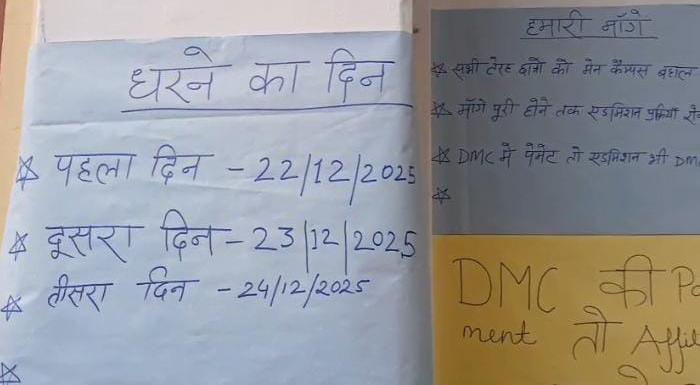 धरने का दिन
☆ पहला दिन - 22/12/2025
☆ दूसरा दिन - 23/12/2025
☆ तीसरा दिन - 24/12/2025
☆
हमारी माँगे
☆ सभी तेरह छात्रो को मेन कैम्पस बहाल
☆ माँगे पूरी होने तक एडमिशन प्रक्रिया
☆ DMC में पेमेंट तो एडमिशन भी DM
☆
DMC की Pa
ment तो Affil